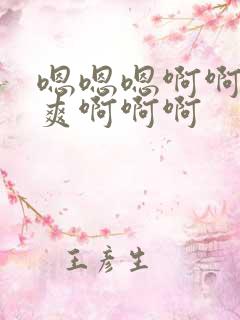 嗯嗯嗯啊啊
爽啊啊啊
王彦生